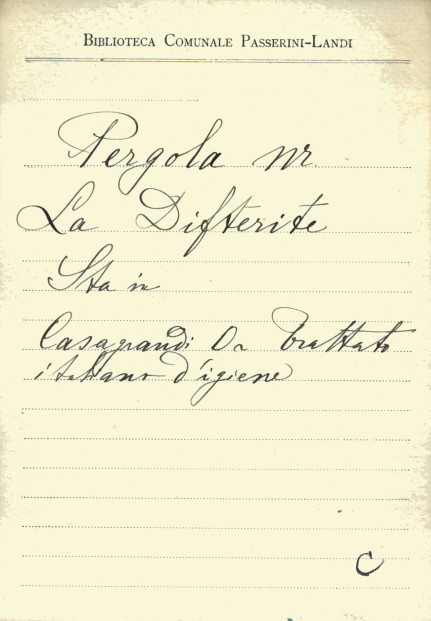 BIBLIOTECA COMUNALE PASSERINI-LANDI
Pergola m.
La Difterite
Sta in
Casagrandi O. Trattato
italiano d'igiene
C